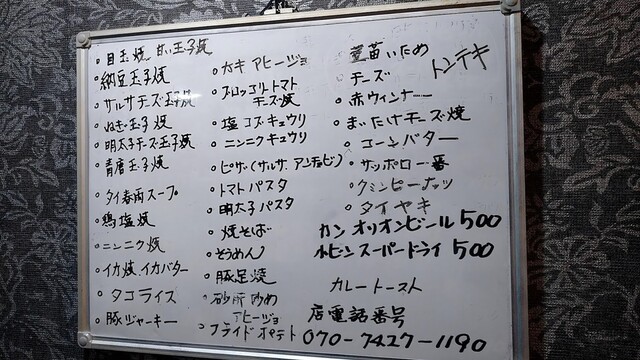 目玉焼 甘い玉子焼
納豆玉子焼
サルサチーズ玉子焼
ねぎ玉子焼
明太子チーズ玉子焼
青唐玉子焼
タイ春雨スープ
鶏塩焼
ニンニク焼
イカ焼 イカバター
タコライス
豚ジャーキー
カキ アヒージョ
ブロッコリトマト
チーズ焼
塩コブキュウリ
ニンニクキュウリ
ピザ(サルサ アンチョビ)
トマトパスタ
明太子パスタ
焼そば
そうめん
豚足焼
砂肝炒め
アヒージョ
フライドポテト
豆苗いため
チーズ
トンテキ
赤ウィンナー
まいたけチーズ焼
コーンバター
サッポロ一番
クミンピーナッツ
タイヤキ
カン オリオンビール 500
小ビン スーパードライ 500
カレートースト
店電話番号
070-7427-1190